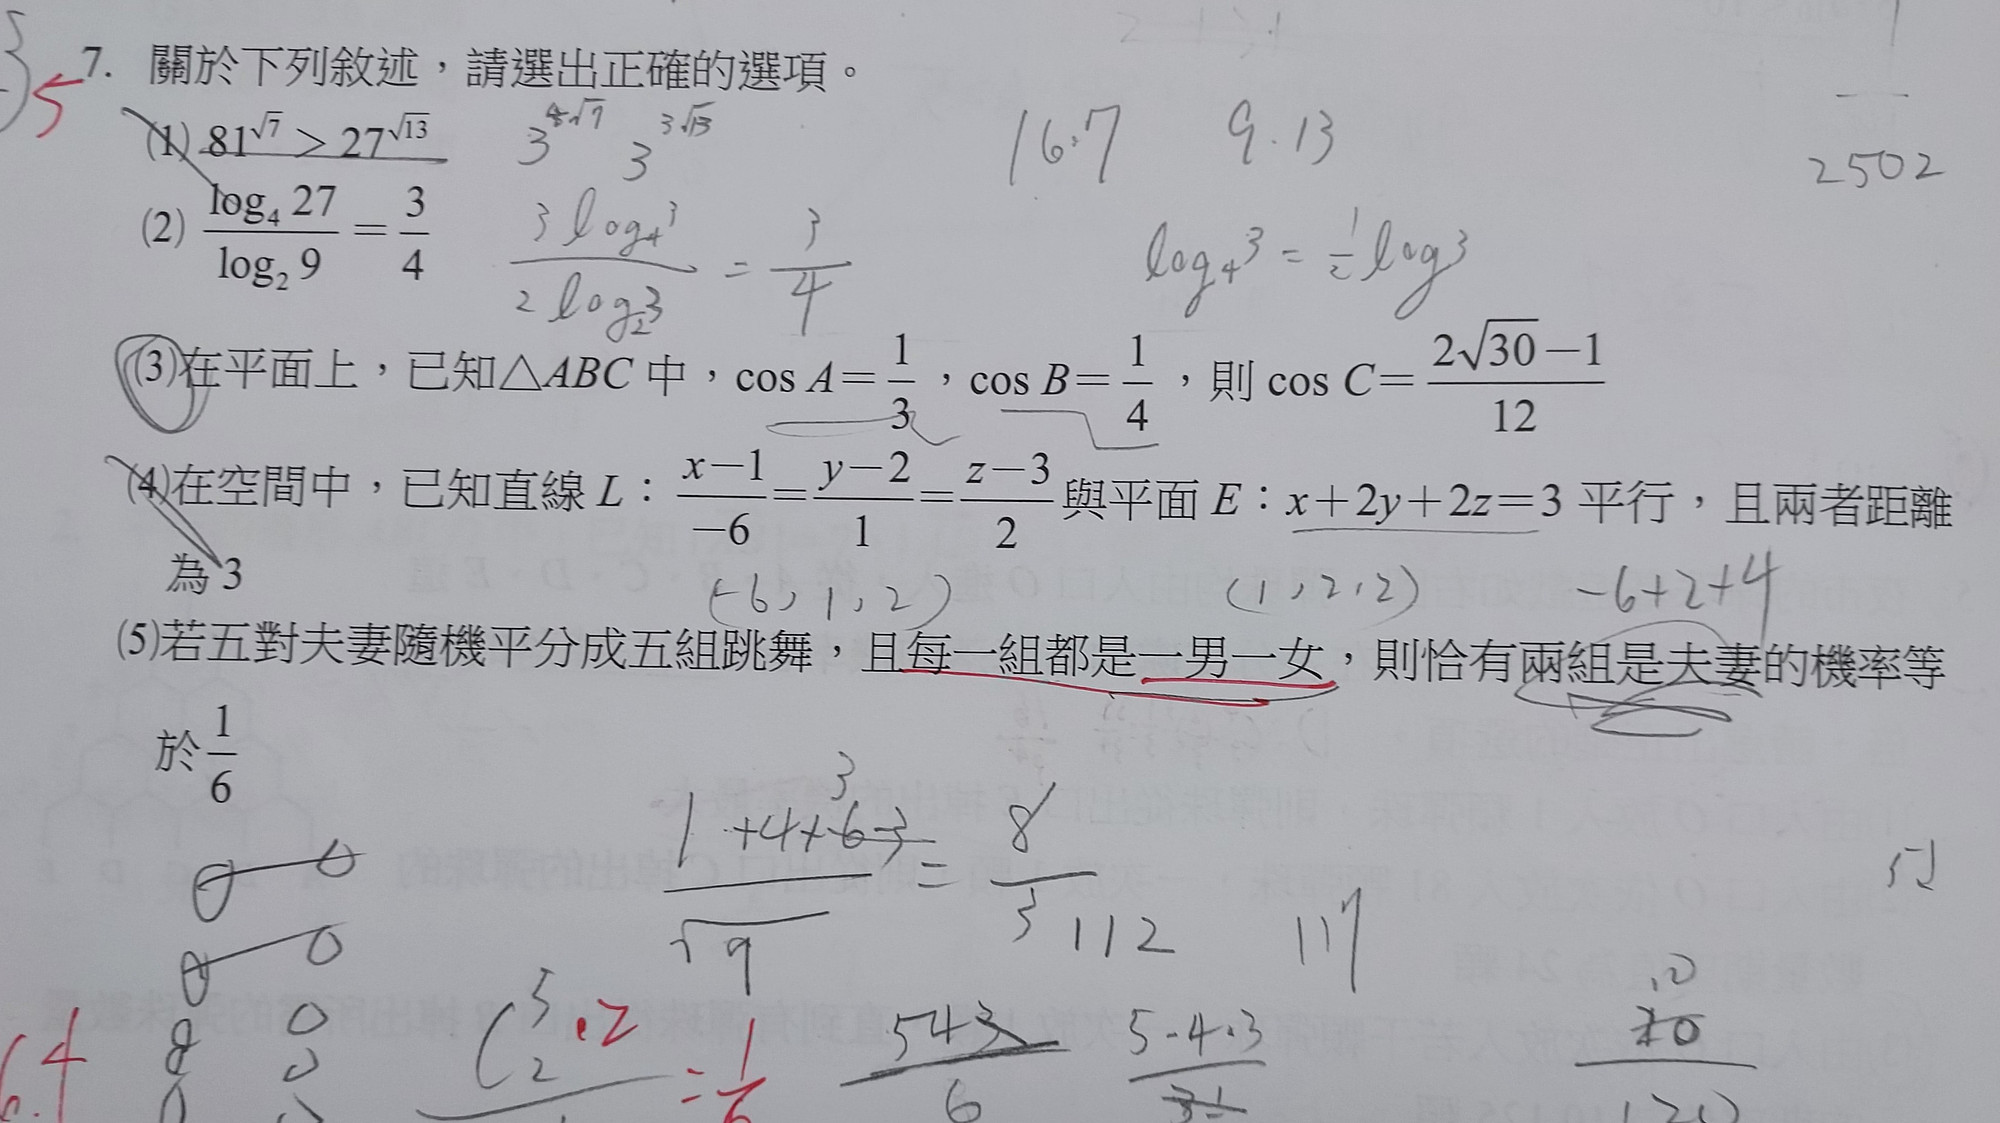 7. 關於下列敘述，請選出正確的選項。
5
(1) 81^√7 > 27^√13
3^4√7 3^3√13
16·7 9·13
2502
(2) log₄ 27 / log₂ 9 = 3/4
3 log₄3 / 2 log₂3 = 3/4
log₄3 = 1/2 log3
(3)在平面上，已知△ABC 中，cos A = 1/3，cos B = 1/4，則 cos C = (2√30 − 1)/12
(4)在空間中，已知直線 L：(x−1)/−6 = (y−2)/1 = (z−3)/2 與平面 E：x+2y+2z=3 平行，且兩者距離
為 3
(−6, 1, 2) (1, 2, 2) −6+2+4
(5)若五對夫妻隨機平分成五組跳舞，且每一組都是一男一女，則恰有兩組是夫妻的機率等
於 1/6
1+4+6−3 / √9 = 8/3
3
112 117
C 5 2 ·2 = 1/6
543 / 6
5·4·3
10
20
120
6.4